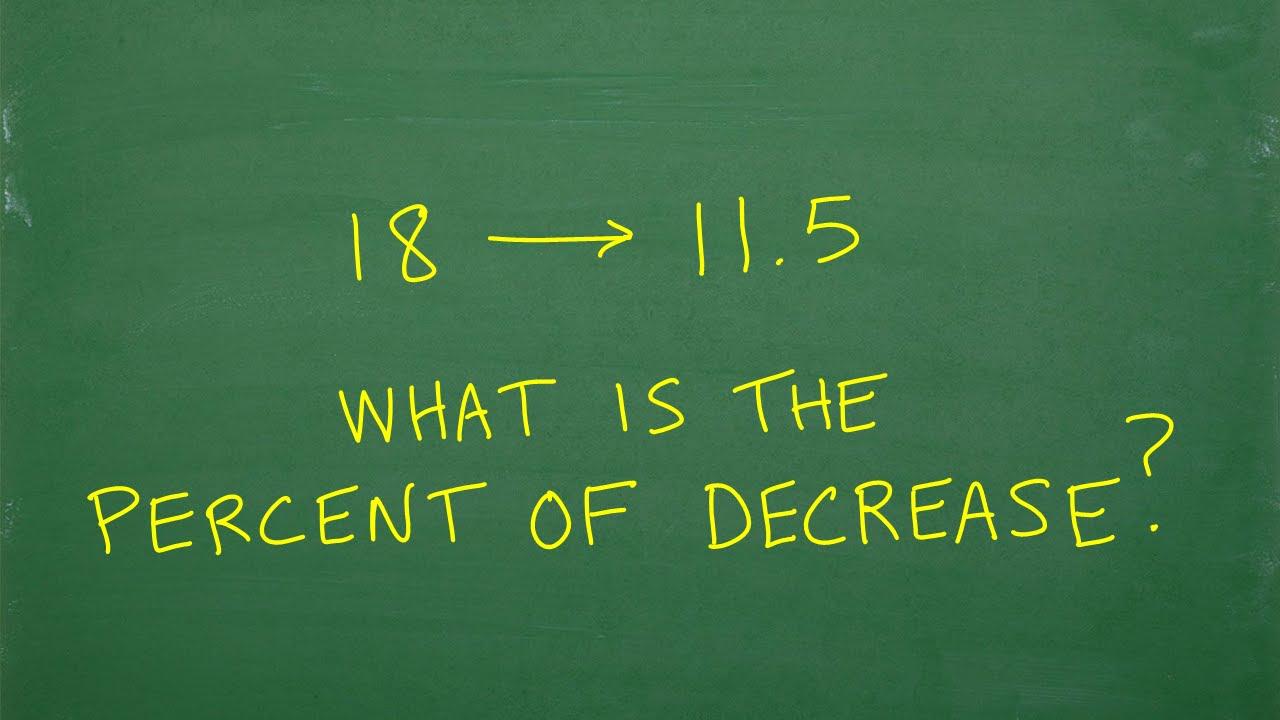 18 → 11.5
WHAT IS THE
PERCENT OF DECREASE?